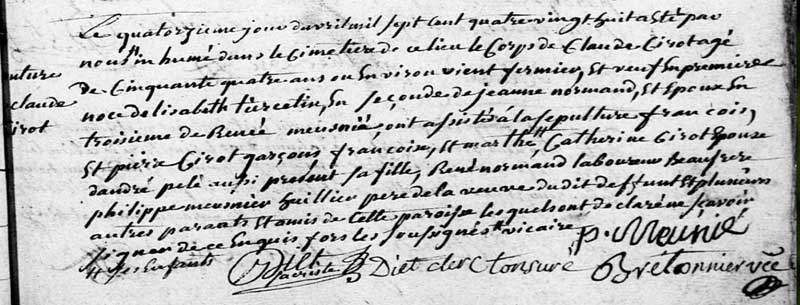 Le quatorzieme jour davril mil sept cent quatre vingt huit a Eté par
nous st in humé dans le Cimetiere de ce lieu le Corps de Claude Girot agé
de Cinquante quatre ans ou Environ vient fermier, Et veuf En premiere
noce delisabeth turcotin, En seconde de jeanne normand, et Epoux En
troisieme de Renée meusnié, ont assistés a la sepulture francois,
Et pierre Girot garçons francoise, Et marthe, Catherine Girot Epouse
dandré pelé aussi present sa fille, René normand laboureur Beaufrere
philippe meusnier huillier pere de la veuve du dit deffunt Et plusieurs
autres parants Et amis de Cette paroisse lesquels ont declaré ne scavoir
signer de ce Enquis, fors les soussignés st vicaire
st ses Enfants
sacriste
Diet clerc tonsuré
p. Meunié
Brétonnier vce
ulture
claude
irot